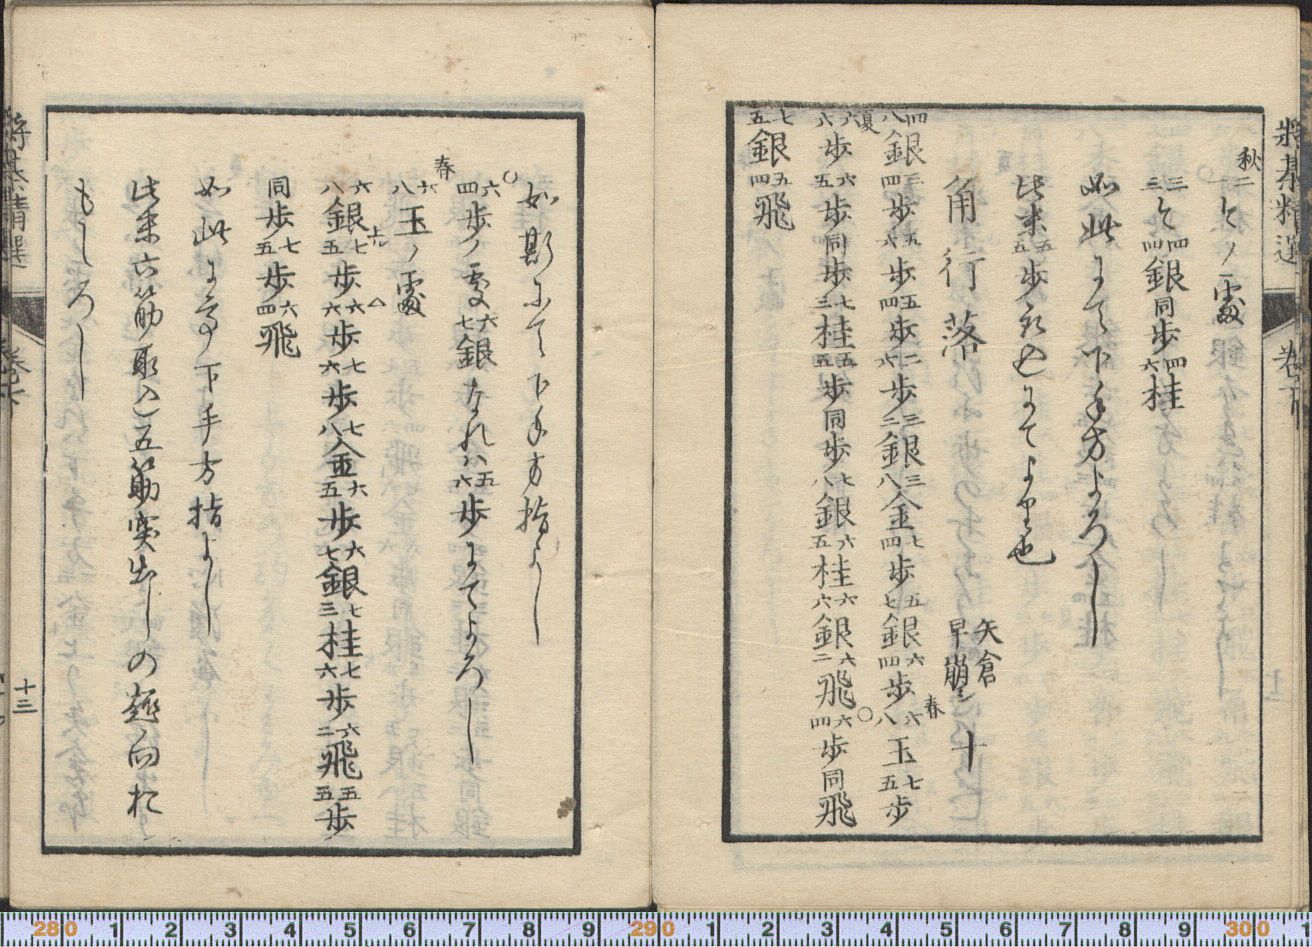 將棊精選
巻下
秋
二と ノ處
三三と四四銀同歩四六桂
如此にて下手方よろしし
此末五五歩
角行落
矢倉
早崩シ
十
四八銀四三歩五六歩五四歩二六歩三二銀三八金七四歩五七銀六四歩六八玉七五歩
春
夏
六六歩六五歩同歩七三桂五五歩同歩七八銀六五桂六六銀六二飛六四歩同飛
七五銀五四飛
如斯にて下手方指よし
六四歩ノ處六七銀なれハ五六歩にてよろしし
春
六八玉ノ處
六八銀七五歩六六歩七六歩七八金六五歩六七銀七三桂七六歩六二飛五五歩
同歩七五歩六四飛
如此にて下手方指よし
此末六筋取込五筋突出しの趣向於
もしろし
十三